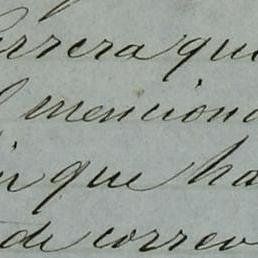 Carrera que
l menciona
in que ha
de correo